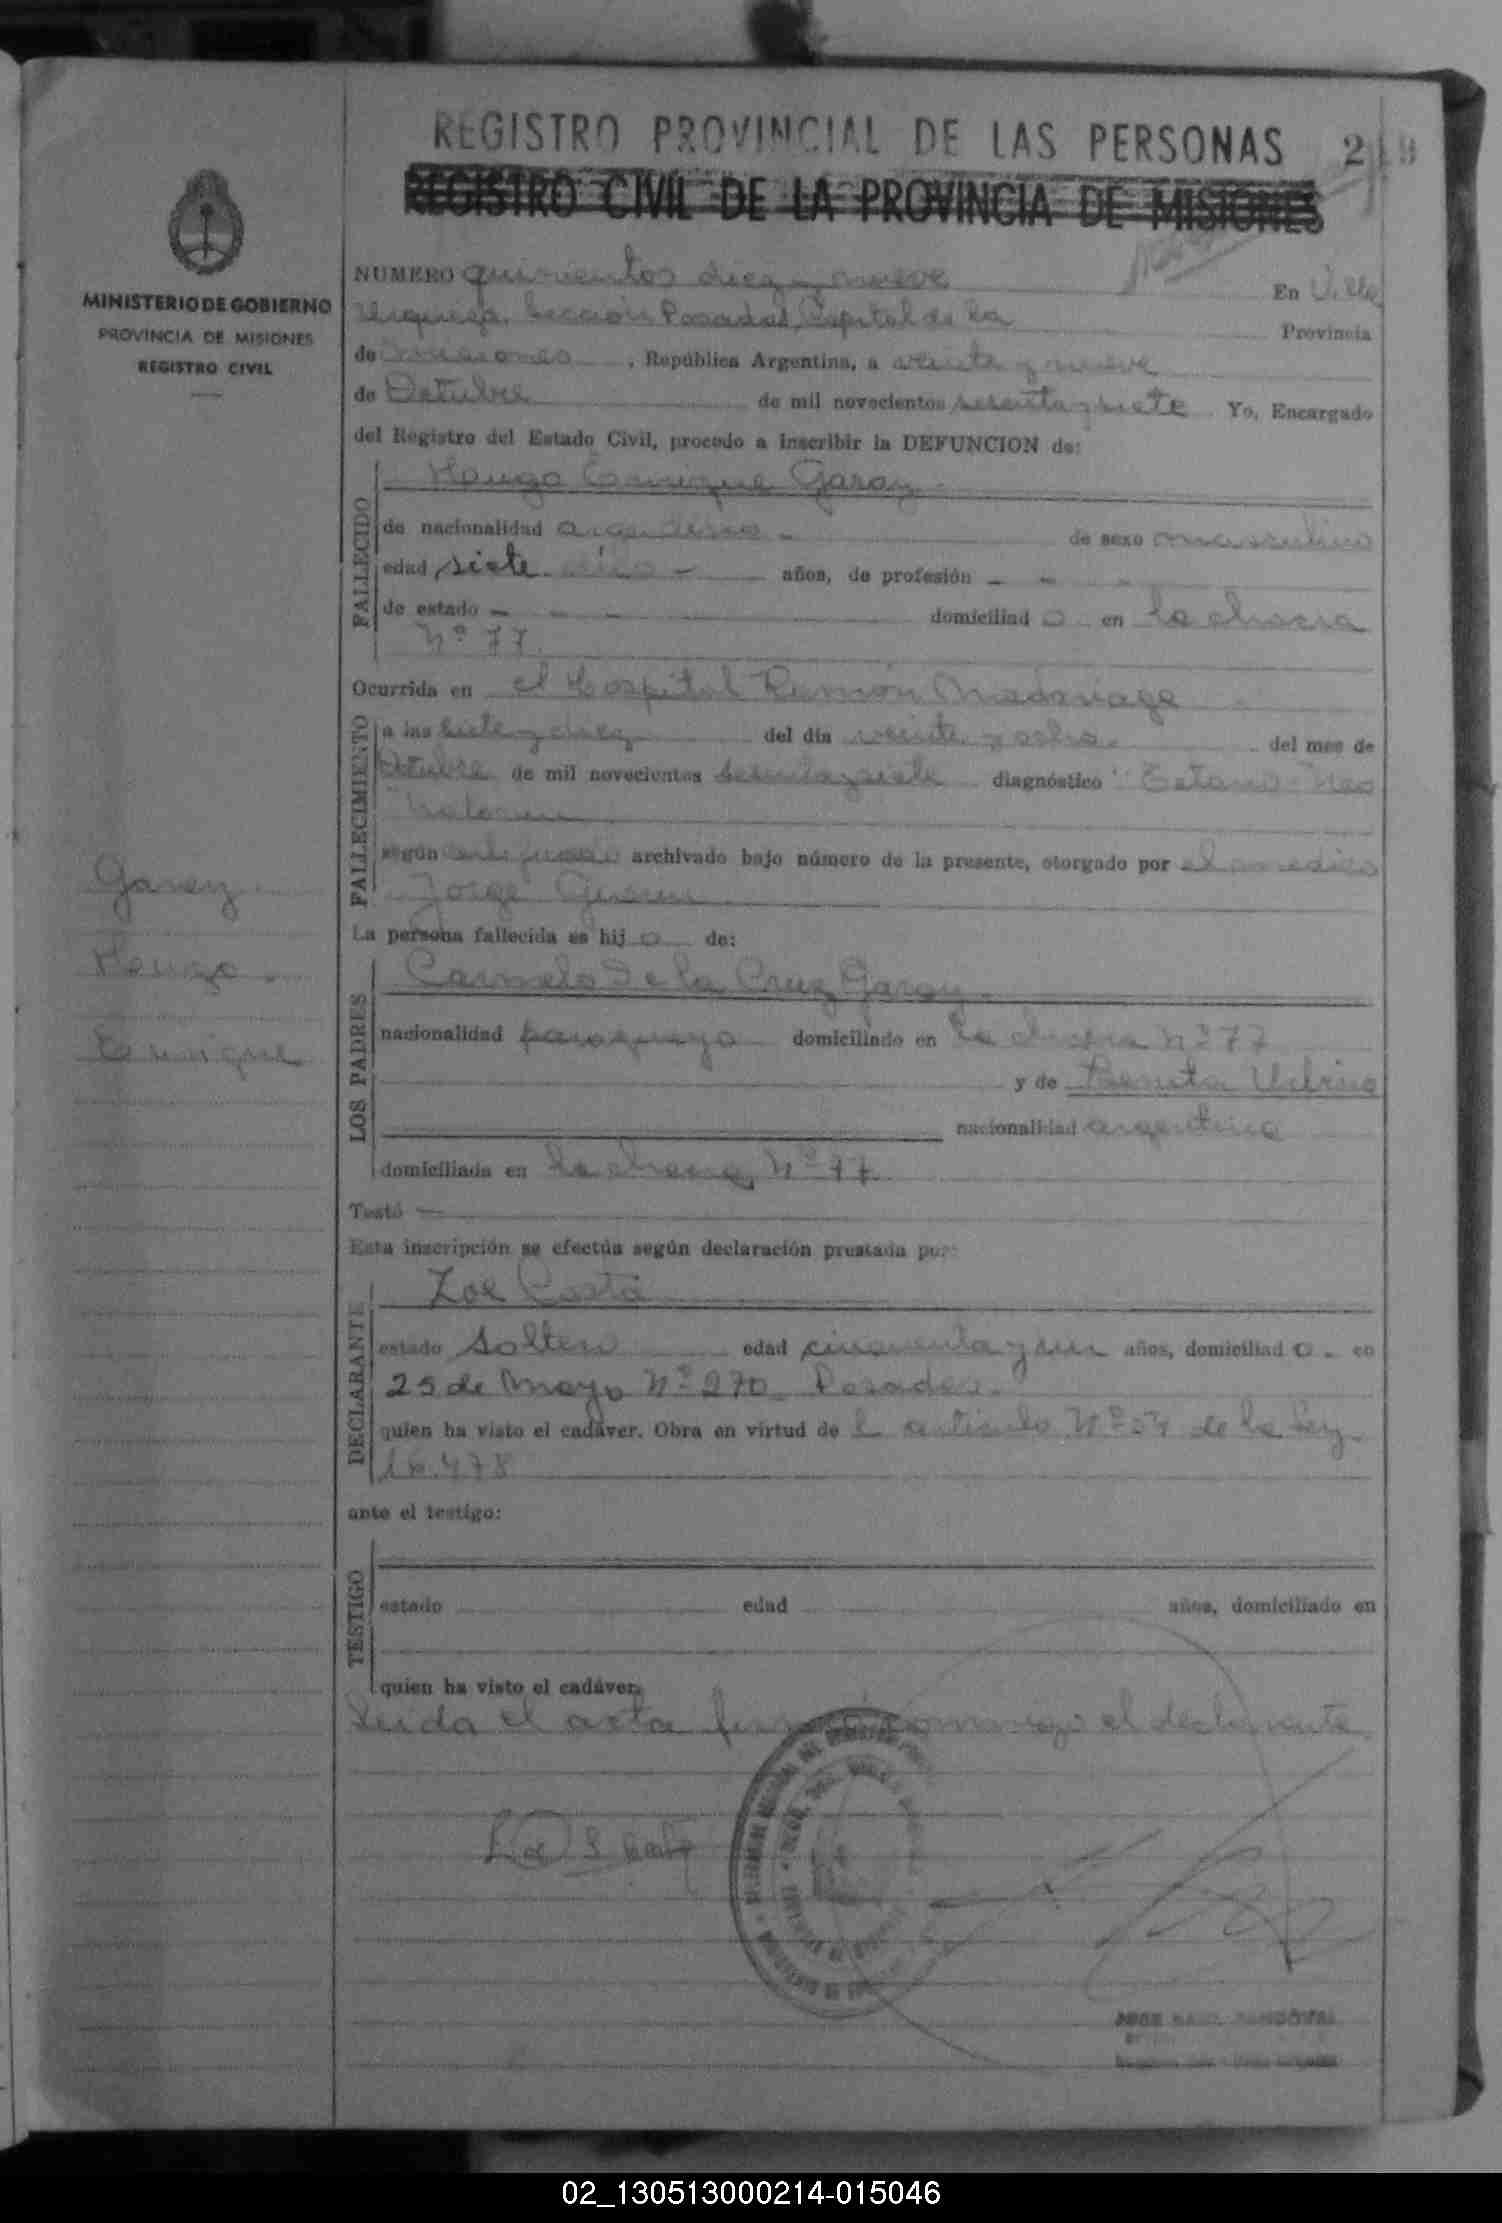 REGISTRO PROVINCIAL DE LAS PERSONAS
REGISTRO CIVIL DE LA PROVINCIA DE MISIONES
MINISTERIO DE GOBIERNO
PROVINCIA DE MISIONES
REGISTRO CIVIL
NUMERO quinientos diez y nueve En Villa
Urquiza, Sección Posadas, Capital de la Provincia
de Misiones, República Argentina, a veinte y nueve
de Octubre de mil novecientos sesenta y siete Yo, Encargado
del Registro del Estado Civil, procedo a inscribir la DEFUNCION de:
FALLECIDO
Hougo Enrique Garay
de nacionalidad argentino de sexo masculino
edad siete días años, de profesión
de estado domiciliado en la chacra
Nº 77.
FALLECIMIENTO
Ocurrida en el Hospital Ramón Madariaga
a las siete y diez del día veinte y ocho del mes de
Octubre de mil novecientos sesenta y siete diagnóstico Tetano Neo
según certificado archivado bajo número de la presente, otorgado por el medico
Jorge
La persona fallecida es hijo de:
Garay
Hougo
Enrique
LOS PADRES
Carmelo De la Cruz Garay
nacionalidad paraguayo domiciliado en la chacra Nº 77
y de Benita
nacionalidad argentina
domiciliada en la chacra Nº 77
Testó
Esta inscripción se efectúa según declaración prestada por:
DECLARANTE
Zoe Costa
estado soltero edad cincuenta y un años, domiciliado en
25 de Mayo Nº 270 Posadas.
quien ha visto el cadáver. Obra en virtud del articulo Nº de la Ley
16.478
ante el testigo:
TESTIGO
estado edad años, domiciliado en
quien ha visto el cadáver.
Leida el acta firmó conmigo el declarante
02_130513000214-015046